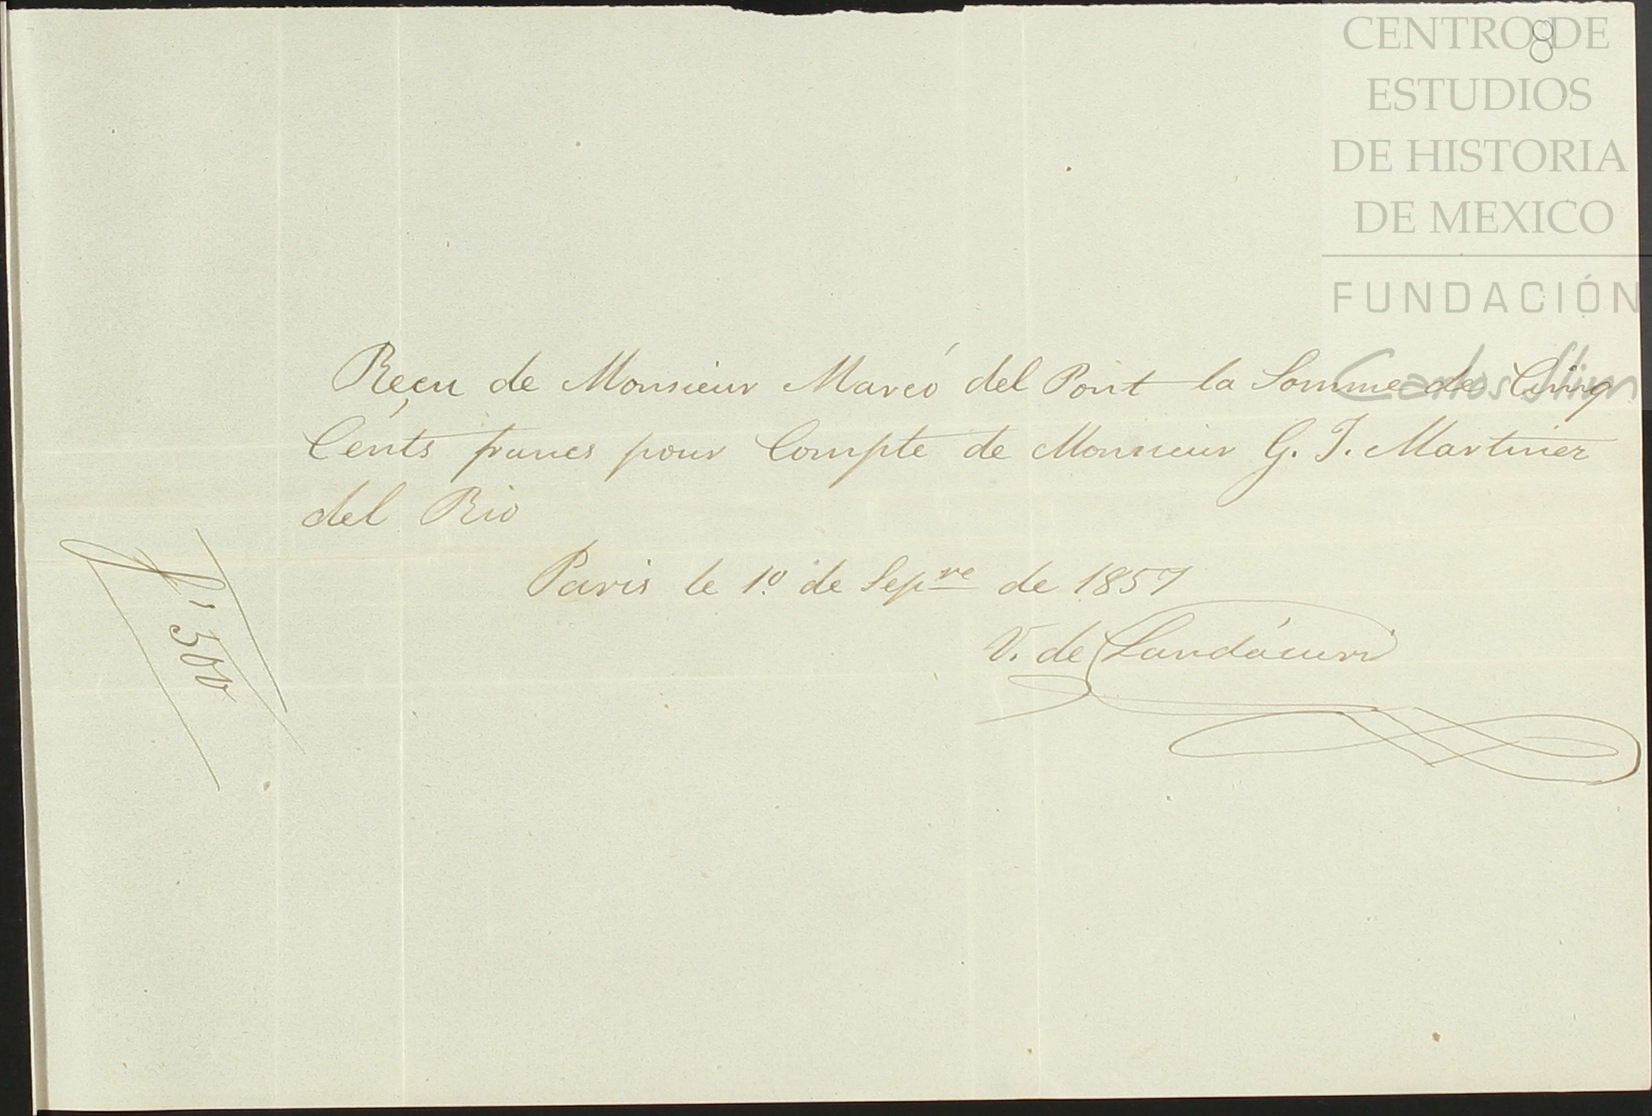 8
CENTRO DE
ESTUDIOS
DE HISTORIA
DE MEXICO
FUNDACIÓN
Carlos Slim
Reçu de Monsieur Marcó del Pont la Somme de Cinq
Cents francs pour Compte de Monsieur G. J. Martinez
del Rio
Paris le 1º de Sepre de 1857
V. de Landáuri
f. 500